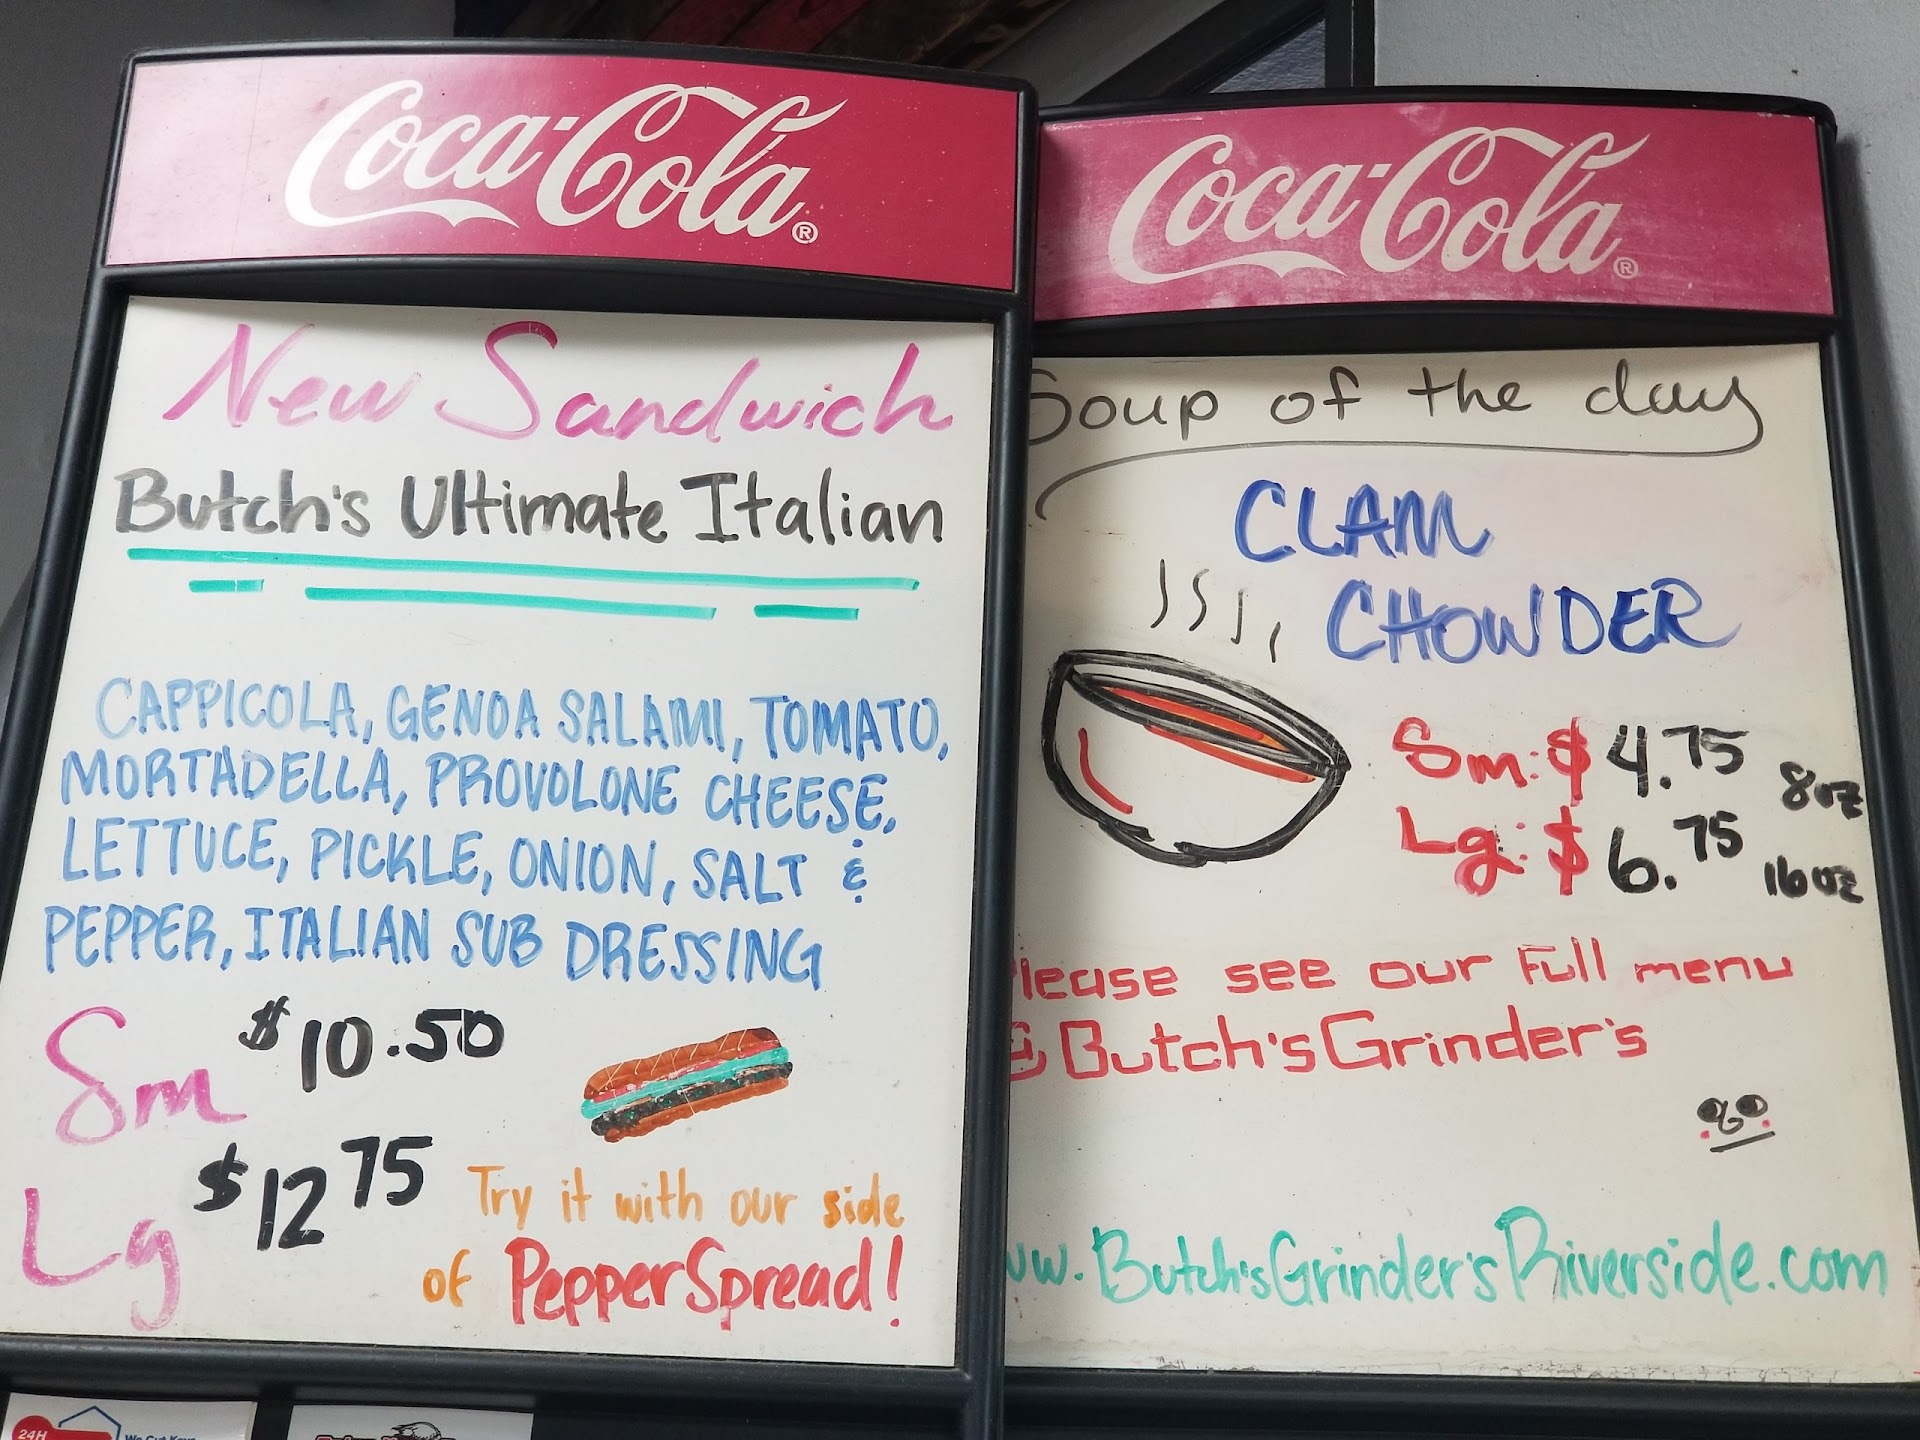 Coca-Cola®
New Sandwich
Butch's Ultimate Italian
CAPPICOLA, GENOA SALAMI, TOMATO,
MORTADELLA, PROVOLONE CHEESE,
LETTUCE, PICKLE, ONION, SALT &
PEPPER, ITALIAN SUB DRESSING
Sm $10.50
Lg $12.75
Try it with our side
of PepperSpread!
24H
We Cut Keys
Coca-Cola®
Soup of the day
CLAM
CHOWDER
Sm: $4.75 8oz
Lg: $6.75 16oz
Please see our Full menu
@ Butch's Grinder's
www.Butch'sGrinder'sRiverside.com